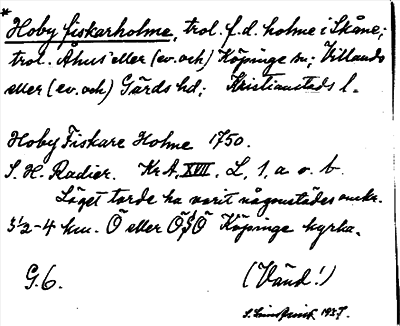 *
Hoby fiskarholme, trol. f.d. holme i Skåne;
trol. Åhus eller (ev. och) Köpinge sn; Villands
eller (ev. och) Gärds hd; Kristianstads l.
Hoby Fiskare Holme 1750.
S. H. Radier. Kr A, XVII, L, 1, a o. b.
Läget torde ha varit någonstädes omkr.
3½-4 km. Ö eller ÖSÖ Köpinge kyrka.
G. 6. (Vänd!)
1937.